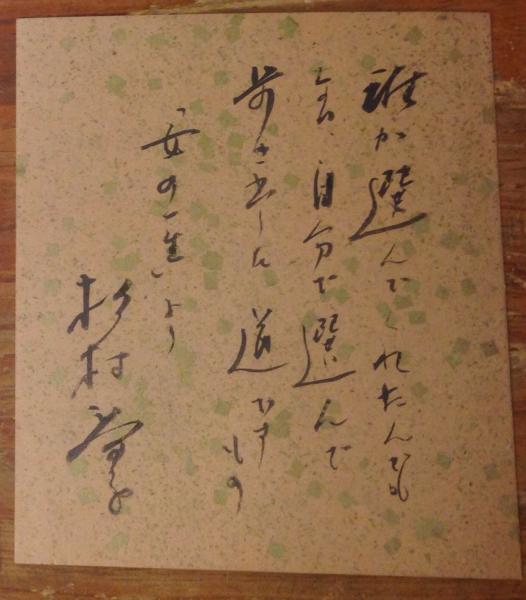 誰が選んでくれたんでも
ない、自分で選んで
歩き出した道ですもの
「女の一生」より
杉村春子